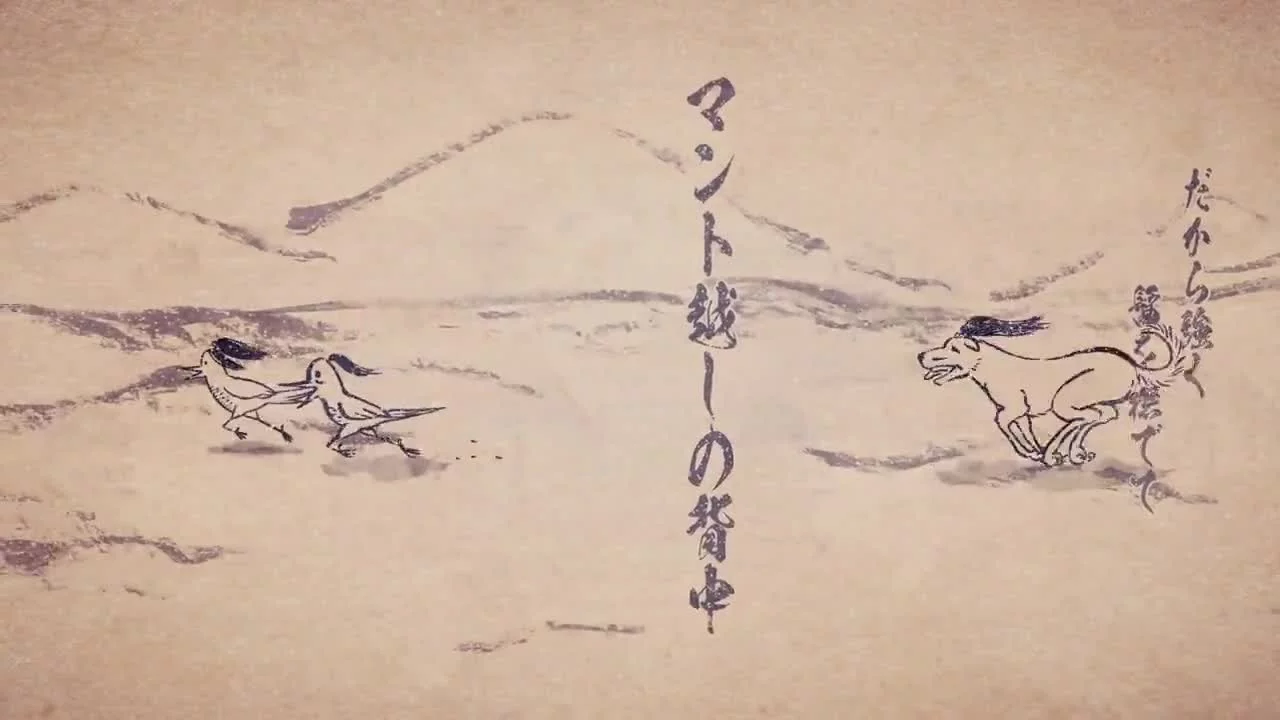 だから強く
を撫でて
マント越しの背中